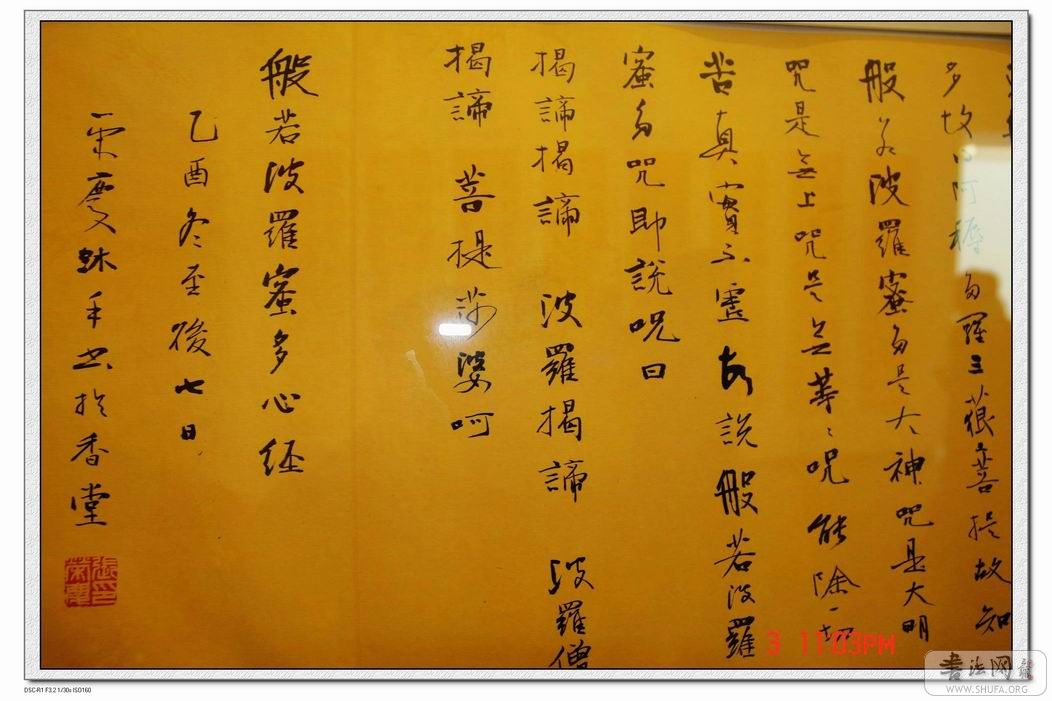 多故得阿耨多羅三藐菩提故知
般若波羅蜜多是大神咒是大明
咒是無上咒是無等々咒能除一切
苦真實不虛故說般若波羅
蜜多咒即說咒曰
揭諦揭諦 波羅揭諦 波羅僧
揭諦 菩提莎婆呵
般若波羅蜜多心经
乙酉冬至後七日
手书於香堂
3 11:03PM
书法网
WWW.SHUFA.ORG
DSC-R1 F3.2 1/30s ISO160